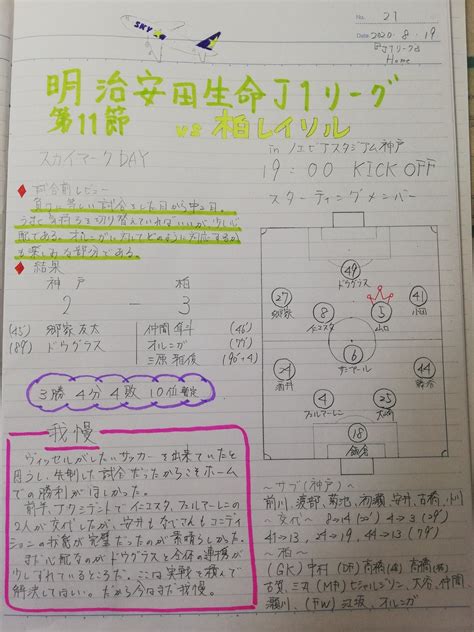 No. 21
Date 2020・8・19
J1リーグ
Home
SKY
明治安田生命J1リーグ
第11節 vs 柏レイソル
スカイマークDAY
in ノエビアスタジアム神戸
19:00 KICK OFF
スターティングメンバー
試合前レビュー
も楽しみな部分である。
結果
神戸 柏
2 — 3
(45') 郷家友大 仲間隼斗 (46')
(89') ドウグラス オルンガ (77')
三原雅俊 (90'+4)
3勝 4分 4敗 10位 暫定
49
ドウグラス
27
郷家
8
イニエスタ
5
山口
41
小田
6
サンペール
24
酒井
4
フェルマーレン
25
大崎
44
藤谷
18
飯倉
我慢
ヴィッセルがしたいサッカーを出来ていたと
思うし、失点した試合だったからこそホーム
での勝利が欲しかった。
2人が交代したが、安井もなおさんもコンディ
ションの状態が完璧だったのが素晴らしかった。
まだ心配なのがドウグラスと全体の連携が
少しずれているところだ。ここは実戦を積んで
解決してほしい。だから今はまだ我慢。
〜サブ(神戸)〜
前川、渡部、菊池、初瀬、安井、古橋、小川
〜交代〜
〜柏〜
(GK) 中村 (DF) 高橋(峻) 高橋(祐)
古賀、三丸 (MF) ヒシャルジソン、大谷、仲間
瀬川、(FW) 江坂、オルンガ